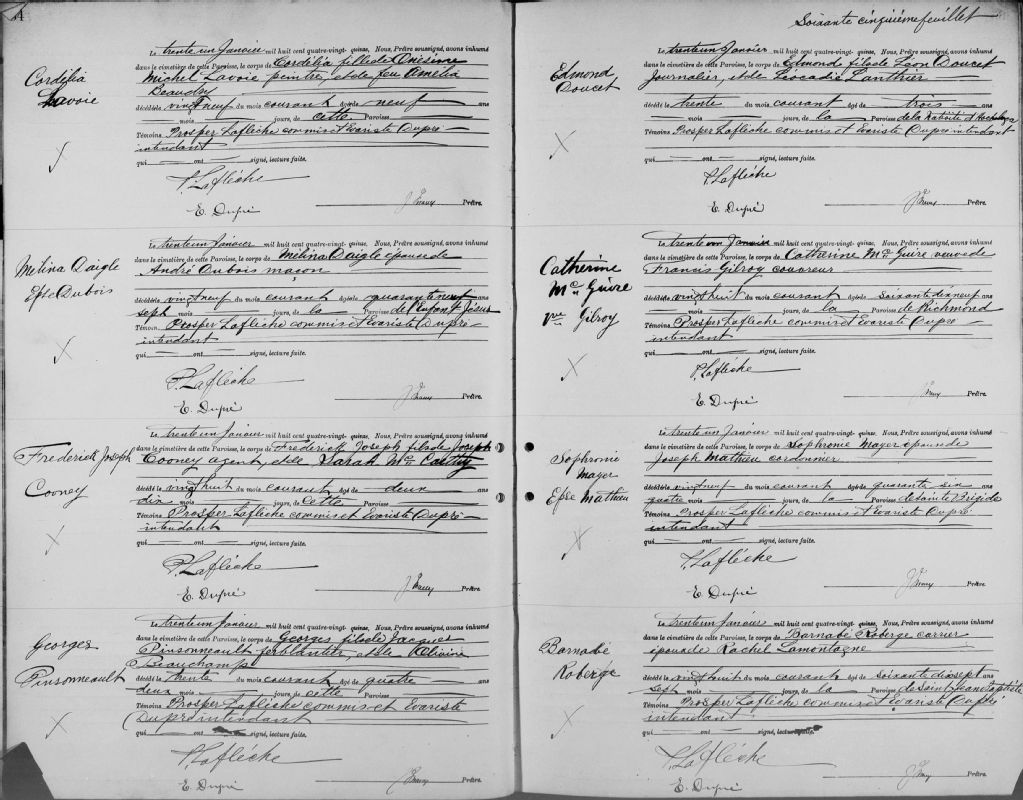 Cordélia
Lavoie
Le trente un Janvier mil huit cent quatre-vingt-quinze, Nous, Prêtre soussigné, avons inhumé
dans le cimetière de cette Paroisse, le corps de Cordélia fille de Onésime
Michel Lavoie peintre, et de feu Amélia
Beaudry
décédé le vingt neuf du mois courant âgé de neuf ans
mois jours, de cette Paroisse
Témoins Prosper Laflèche commis et Evariste Dupré
intendant
qui ont signé, lecture faite.
P. Laflèche
E. Dupré
Prêtre.
Mélina Daigle
Epse Dubois
Le trente un Janvier mil huit cent quatre-vingt-quinze, Nous, Prêtre soussigné, avons inhumé
dans le cimetière de cette Paroisse, le corps de Mélina Daigle épouse de
André Dubois maçon
décédé le vingt neuf du mois courant âgé de quarante neuf ans
sept mois jours, de la Paroisse de l'Enfant Jésus
Témoins Prosper Laflèche commis et Evariste Dupré
intendant
qui ont signé, lecture faite.
P. Laflèche
E. Dupré
Prêtre.
Frederick Joseph
Cooney
Le trente un Janvier mil huit cent quatre-vingt-quinze, Nous, Prêtre soussigné, avons inhumé
dans le cimetière de cette Paroisse, le corps de Frederick Joseph fils de Joseph
Cooney agent, et de Sarah Mc Carthy
décédé le vingt huit du mois courant âgé de deux ans
dix mois jours, de cette Paroisse
Témoins Prosper Laflèche commis et Evariste Dupré
intendant
qui ont signé, lecture faite.
P. Laflèche
E. Dupré
Prêtre.
Georges
Pinsonneault
Le trente un Janvier mil huit cent quatre-vingt-quinze, Nous, Prêtre soussigné, avons inhumé
dans le cimetière de cette Paroisse, le corps de Georges fils de Jacques
Pinsonneault ferblantier, et de Olivine
Beauchamp
décédé le trente du mois courant âgé de quatre ans
deux mois jours, de cette Paroisse
Témoins Prosper Laflèche commis et Evariste
Dupré intendant
qui ont signé, lecture faite.
P. Laflèche
E. Dupré
Prêtre.
Soixante cinquième feuillet
Edmond
Doucet
Le trente un Janvier mil huit cent quatre-vingt-quinze, Nous, Prêtre soussigné, avons inhumé
dans le cimetière de cette Paroisse, le corps de Edmond fils de Léon Doucet
Journalier, et de Léocadie Lanthier
décédé le trente du mois courant âgé de trois ans
mois jours, de la Paroisse de la Nativité d'Hochelaga
Témoins Prosper Laflèche commis et Evariste Dupré intendant
qui ont signé, lecture faite.
P. Laflèche
E. Dupré
Prêtre.
Catherine
Mc Guire
Vve Gilroy
Le trente un Janvier mil huit cent quatre-vingt-quinze, Nous, Prêtre soussigné, avons inhumé
dans le cimetière de cette Paroisse, le corps de Catharine Mc Guire veuve de
Francis Gilroy couvreur
décédé le vingt huit du mois courant âgé de soixante dix neuf ans
mois jours, de la Paroisse de Richmond
Témoins Prosper Laflèche commis et Evariste Dupré
intendant
qui ont signé, lecture faite.
P. Laflèche
E. Dupré
Prêtre.
Sophronie
Mager
Epse Mathieu
Le trente un Janvier mil huit cent quatre-vingt-quinze, Nous, Prêtre soussigné, avons inhumé
dans le cimetière de cette Paroisse, le corps de Sophronie Mager épouse de
Joseph Mathieu cordonnier
décédé le vingt neuf du mois courant âgé de quarante six ans
quatre mois jours, de la Paroisse de Sainte Brigide
Témoins Prosper Laflèche commis et Evariste Dupré
intendant
qui ont signé, lecture faite.
P. Laflèche
E. Dupré
Prêtre.
Barnabé
Roberge
Le trente un Janvier mil huit cent quatre-vingt-quinze, Nous, Prêtre soussigné, avons inhumé
dans le cimetière de cette Paroisse, le corps de Barnabé Roberge carrier
époux de Rachel Lamontagne
décédé le vingt huit du mois courant âgé de soixante dix sept ans
sept mois jours, de la Paroisse de Saint Jean Baptiste
Témoins Prosper Laflèche commis et Evariste Dupré
intendant
qui ont signé, lecture faite.
P. Laflèche
E. Dupré
Prêtre.